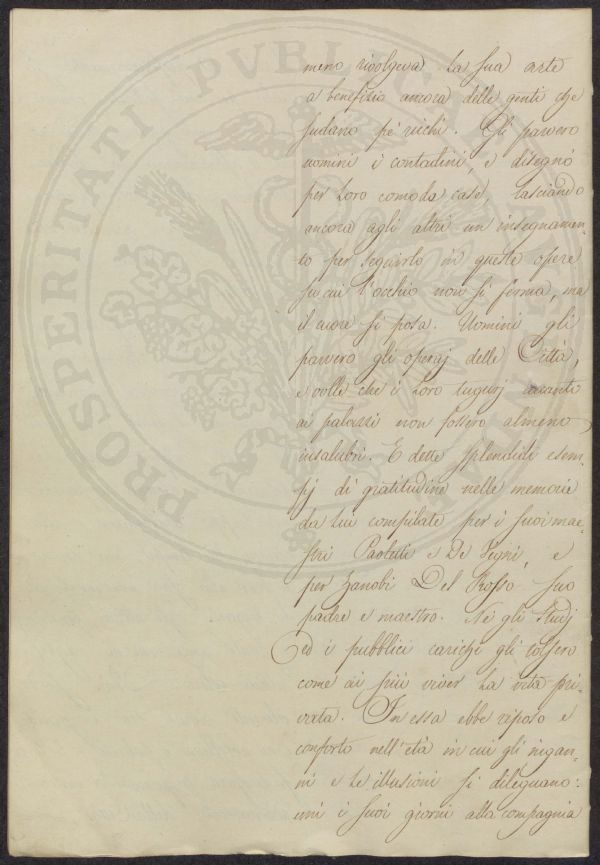 PROSPERITATI PVBLICAE
meno rivolgeva la sua arte
a benefizio ancora delle genti che
sudano pe' ricchi. Gli parvero
uomini i contadini, e disegnò
per loro comode case, lasciando
ancora agli altri un insegnamen-
to per seguirlo in queste opere
su cui l'occhio non si ferma, ma
il cuore si posa. Uomini gli
parvero gli operaj delle Città,
e volle che i loro tugurj accanto
ai palazzi non fossero almeno
insalubri. E dette splendidi esem-
pj di gratitudine nelle memorie
da lui compilate per i suoi mae-
stri Paoletti e De Vegni, e
per Zanobi Del Rosso suo
padre e maestro. Nè gli studj
ed i pubblici carichi gli tolsero
come ai più viver la vita pri-
vata. In essa ebbe riposo e
conforto nell'età in cui gli ingan-
ni e le illusioni si dileguano:
unì i suoi giorni alla compagnia